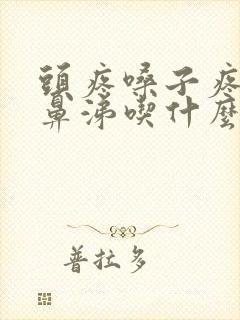 頭疼嗓子疼
鼻涕喫什麼
普拉多